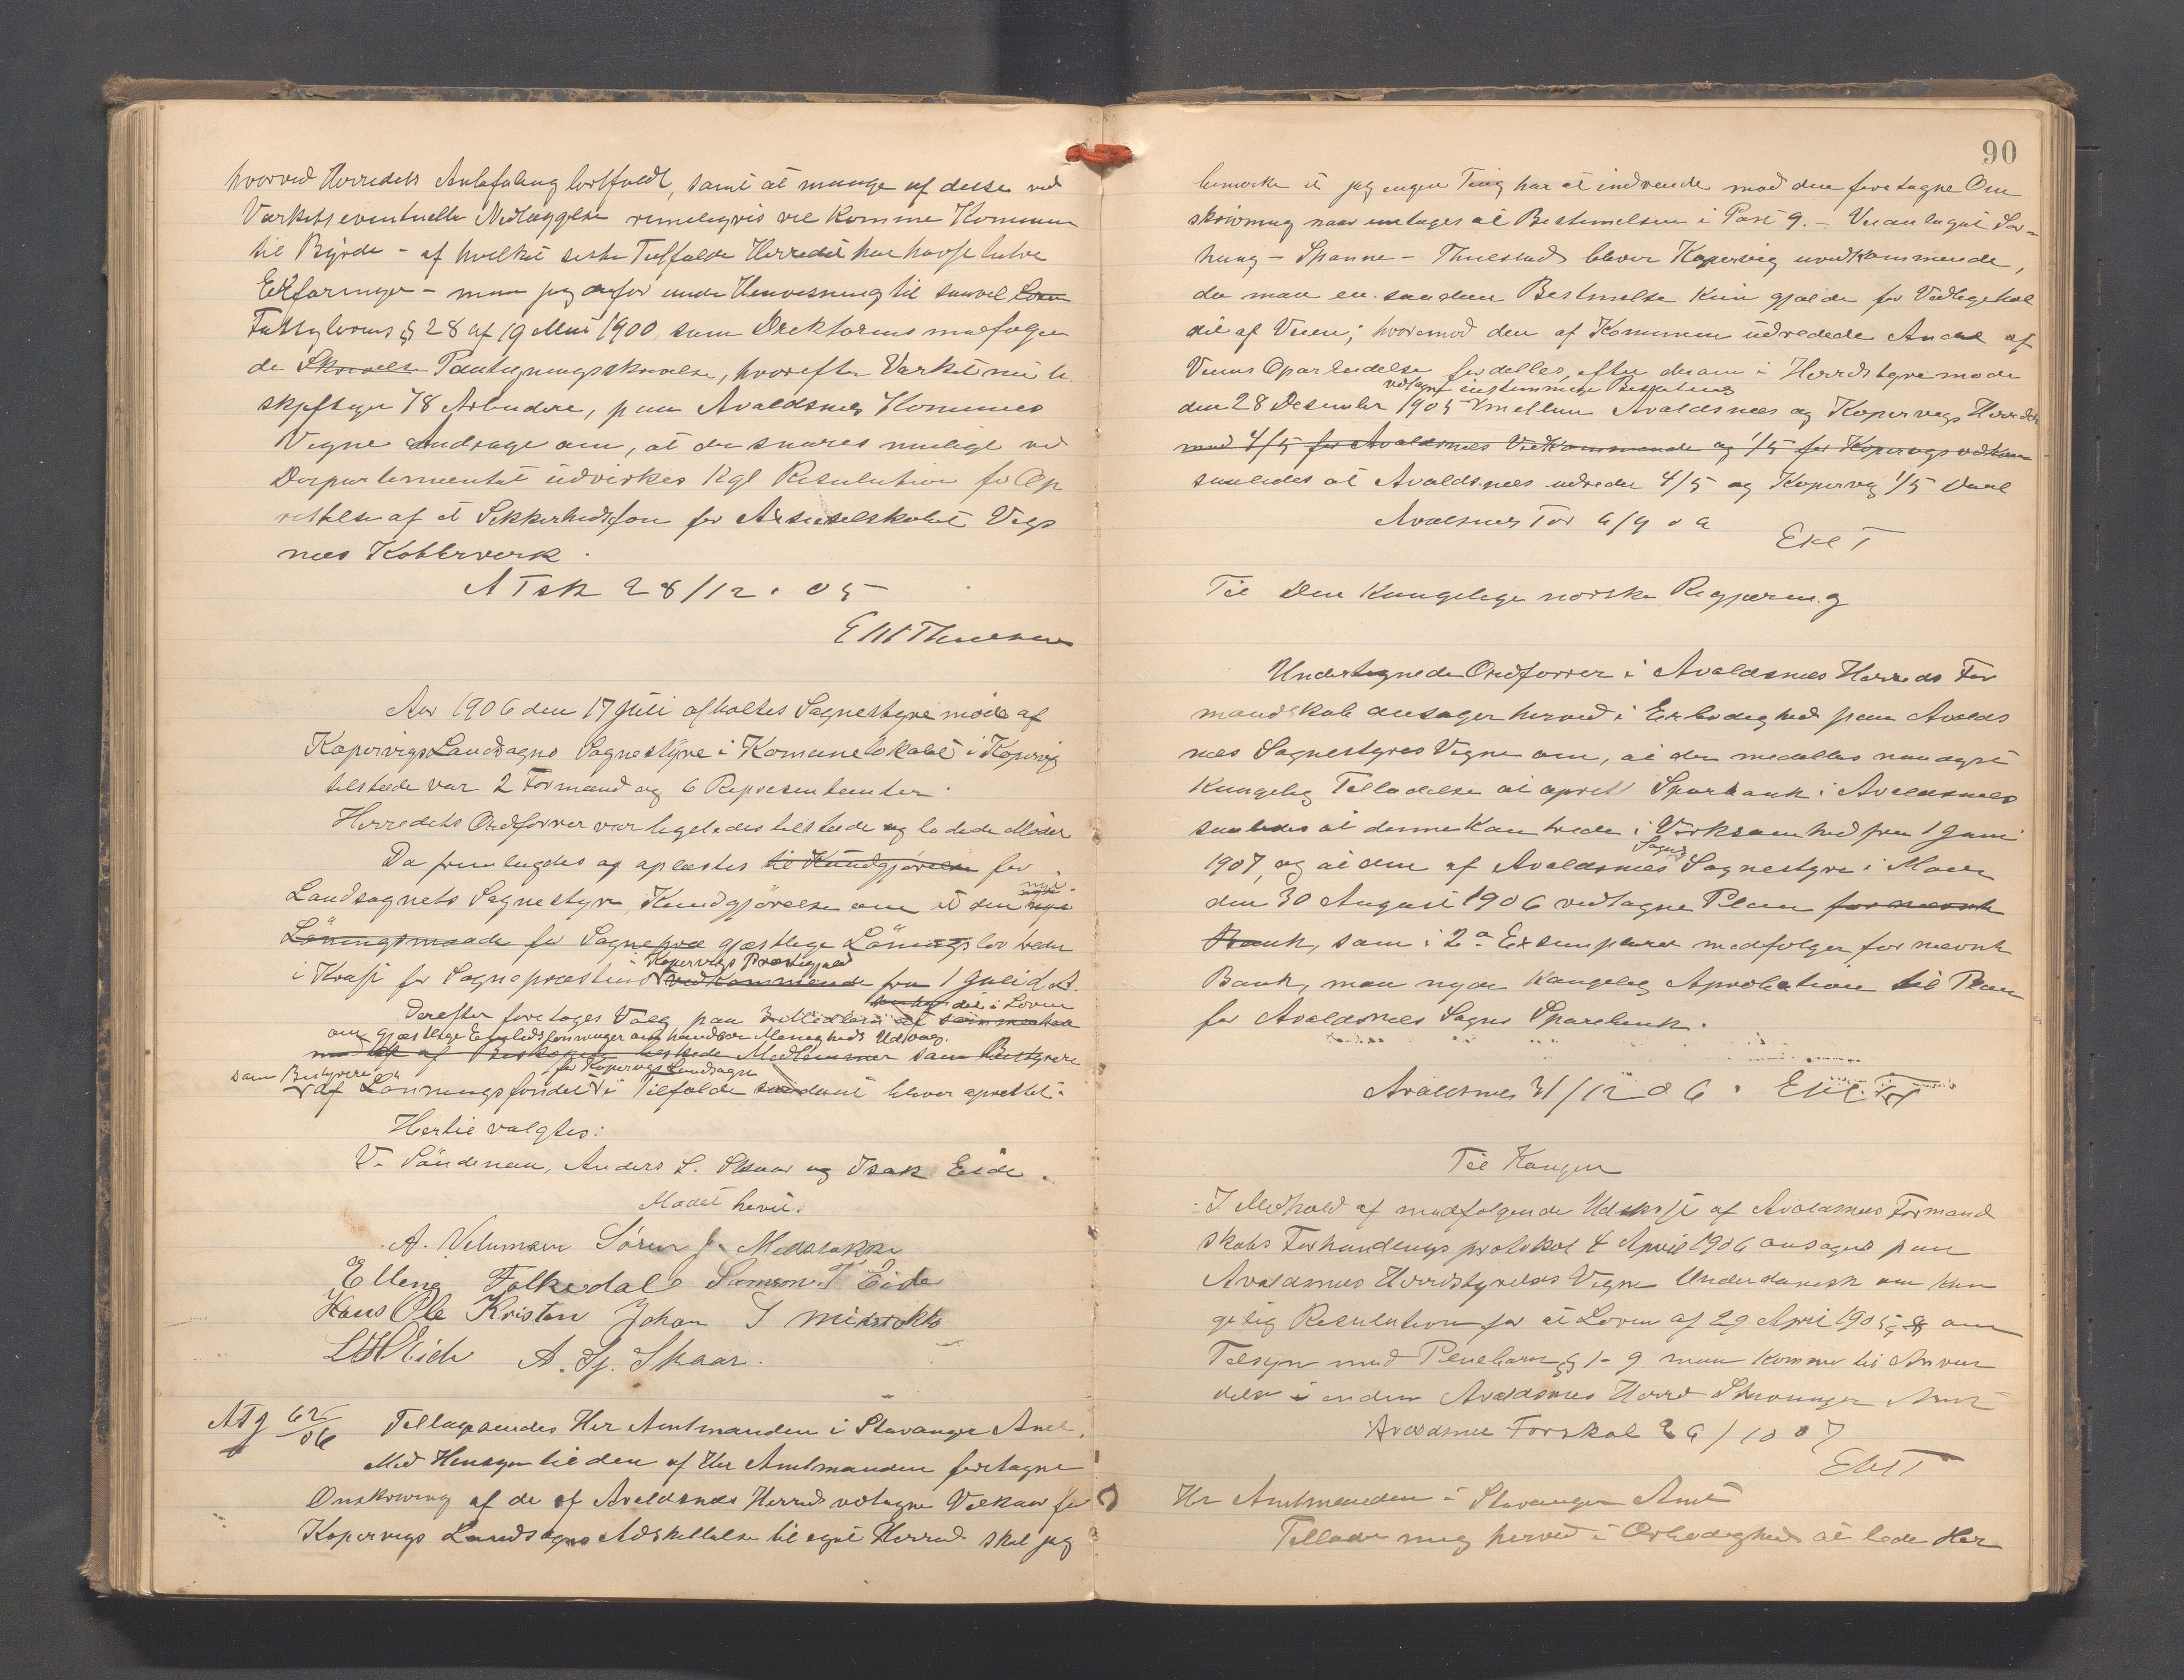 hvorved Herredets Anbefaling bortfaldt, samt at mange af disse ved
Værkets eventuelle Nedlæggelse rimeligvis vil komme Kommunen
til Byrde – af hvilket sidste Tilfælde Herredet har havt
Erfaringer – maa jeg derfor under Henvisning til saavel Loven
Fattiglovens § 28 af 19 Mai 1900, som Direktørens medfølgen
de Skrivelse Paategningsskrivelse, hvorefter Værket nu be
skjæftiger 78 Arbeidere, paa Avaldsnes Kommunes
Vegne andrage om, at der snarest muligt ved
Departementet udvirkes Kgl Resulution for Op
rettelse af et Sikkerhedsfon for Aktieselskabet Vigs
næs Kobberverk.
A Fsk 28/12. 05
E M Thuesen
Aar 1906 den 17 Juli afholtes Sognestyremöde af
Kopervigs Landsogns Sognestyre i Komunelokalet i Kopervig
tilstede var 2 Formænd og 6 Representanter.
Herredets Ordförrer var ligeledes tilstede og ledede Mödet
Da fremlagdes og oplæstes til Kundgjørelse for
Landsognets Sognestyre Kundgjörelse om at den nye nye
Lönningsmaade for Sognepræ gjæstlige Lönningslov træder
i Kopervigs Præstegjæld
i Kraft for Sognepræsten vedkommende fra 1 Juli d.A.
det i Loven
Derefter foretages Valg paa 3 Medlemer af
om gjæstlige Embedsforninger omhandlede Menigheds Udvalg.
af Biskopen beskede Medlemmer som Bestyrere
som Bestyrere for Kopervigs Landsogn
af Lönningsfondet i Tilfælde saadant bliver oprettet.
Hertil valgtes:
V. Söndenaa, Anders S. Skaar og Isak Eide.
Mödet hævet.
A. Velumsen Sören J. Medstokke
Elleng Falkedal Samson T Eide
Hans Ole Kristen Johan S Midstokke
L H Eide A. Sj. Skaar.
AFj 62/06 Tilbagesendes Her Amtmanden i Stavanger Amt.
Med Hensyn til den af Her Amtmanden foretagne
Omskrivning af de af Avaldsnes Herred vedtagne Vilkaar for
Kopervigs Landsogns Adskillelse til eget Herred skal jeg
90
bemærke at jeg ingen Ting har at indvende mod den foretagne Om
skrivning naar undtages at Bestemelsen i Post 9. – Veianlægget Sör-
haug – Spanne – Thuestad bliver Kopervig uvedkommende,
da maa en saadan Bestmelse kun gjælde for Vedligehol
det af Veien; hvorimod den af Komunen udredede Andel af
Veiens Oparbeidelse fordelles, efter deraa i Herredstyremöde
vedtagne enstemmige Beslutning
den 28 Desember 1905 mellem Avaldsnes og Kopervigs Herreder
med 4/5 for Avaldsnes Vedkommende og 1/5 for Kopervigs vedkom
saaledes at Avaldsnes udreder 4/5 og Kopervig 1/5 Deel
Avalsnes For 6/9 06
E M T
Til Den Kongelige norske Regjæring
Undertegnede Ordförrer i Avaldsnes Herreds For
mandskab ansøger herved i Erbödighed paa Avalds
næs Sognestyres Vegne om, at der meddelles naadigst
Kongelig Tilladelse at oprett Sparbank i Avaldsnes
saaledes at denne kan træde i Virksomhed fra 1 Juni
Sogns
1907, og at den af Avaldsnes Sognestyre i Möde
den 30 August 1906 vedtagne Plan for nævnte
Bank, som i 2a Exsemplarer medfølger for nævnte
Bank, maa nyde Kongelig Aprobation til Plan
for Avaldsnes Sogns Sparebank.
Avaldsnes 31/12 06. E M. T
Til Kongen
I Medhold af medfølgende Udskrift af Avaldsnes Formand
skabs Forhandlings protokol 4 April 1906 ansøges paa
Avaldsnes Herredstyrelses Vegne Underdanisk om kon
gelig Resulution for at Loven af 29 April 1905 om
Tilsyn med Pleiebarn § 1-9 maa komme til Anven
delse i enden Avaldsnes Herred Stavanger Amt
Avaldsnes Forskab 26/10 07
E M T
Hr Amtmanden i Stavanger Amt
Tillader mig herved i Ærbødighed at lade Her